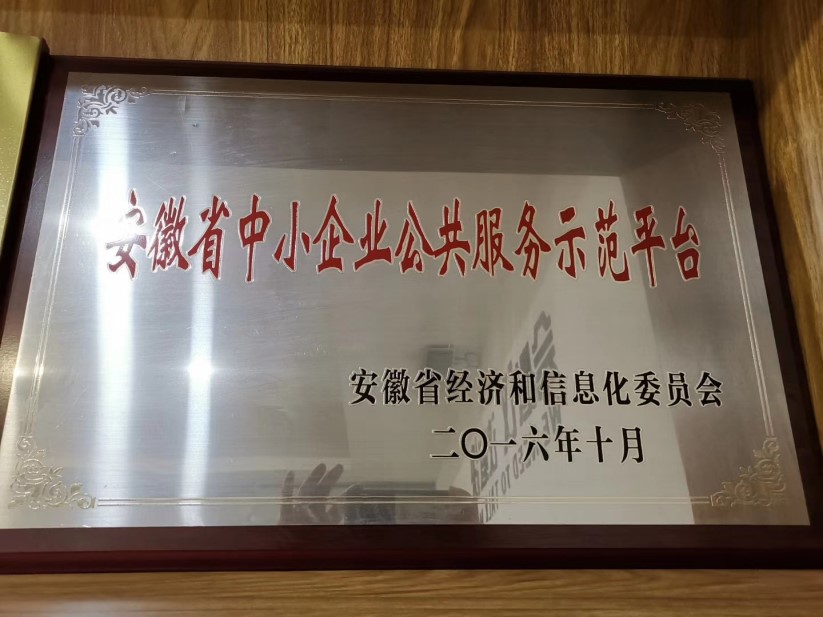 安徽省中小企业公共服务示范平台
安徽省经济和信息化委员会
二〇一六年十月